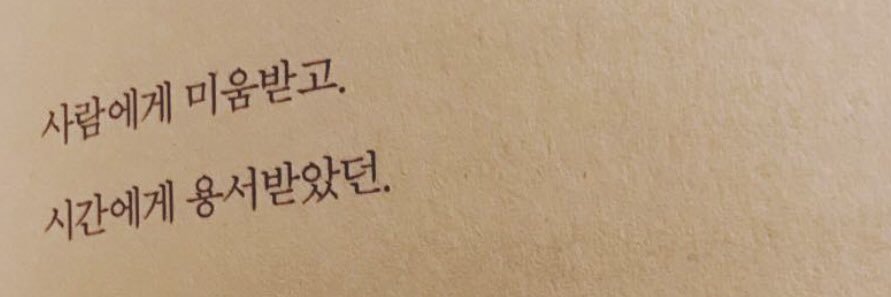 사람에게 미움받고.
시간에게 용서받았던.